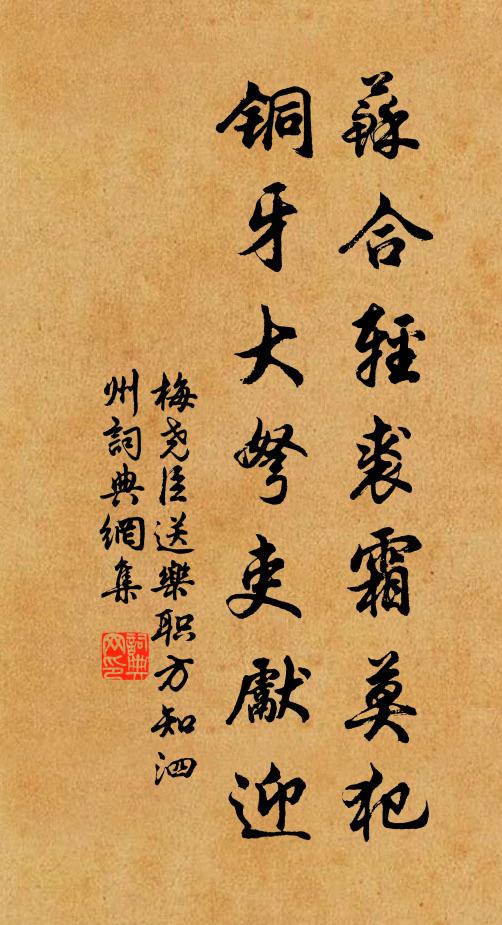 蘇合輕裘霜莫犯
銅牙大弩吏獻迎
梅尧臣送樂职方知泗
州詞典網集
詞典网印